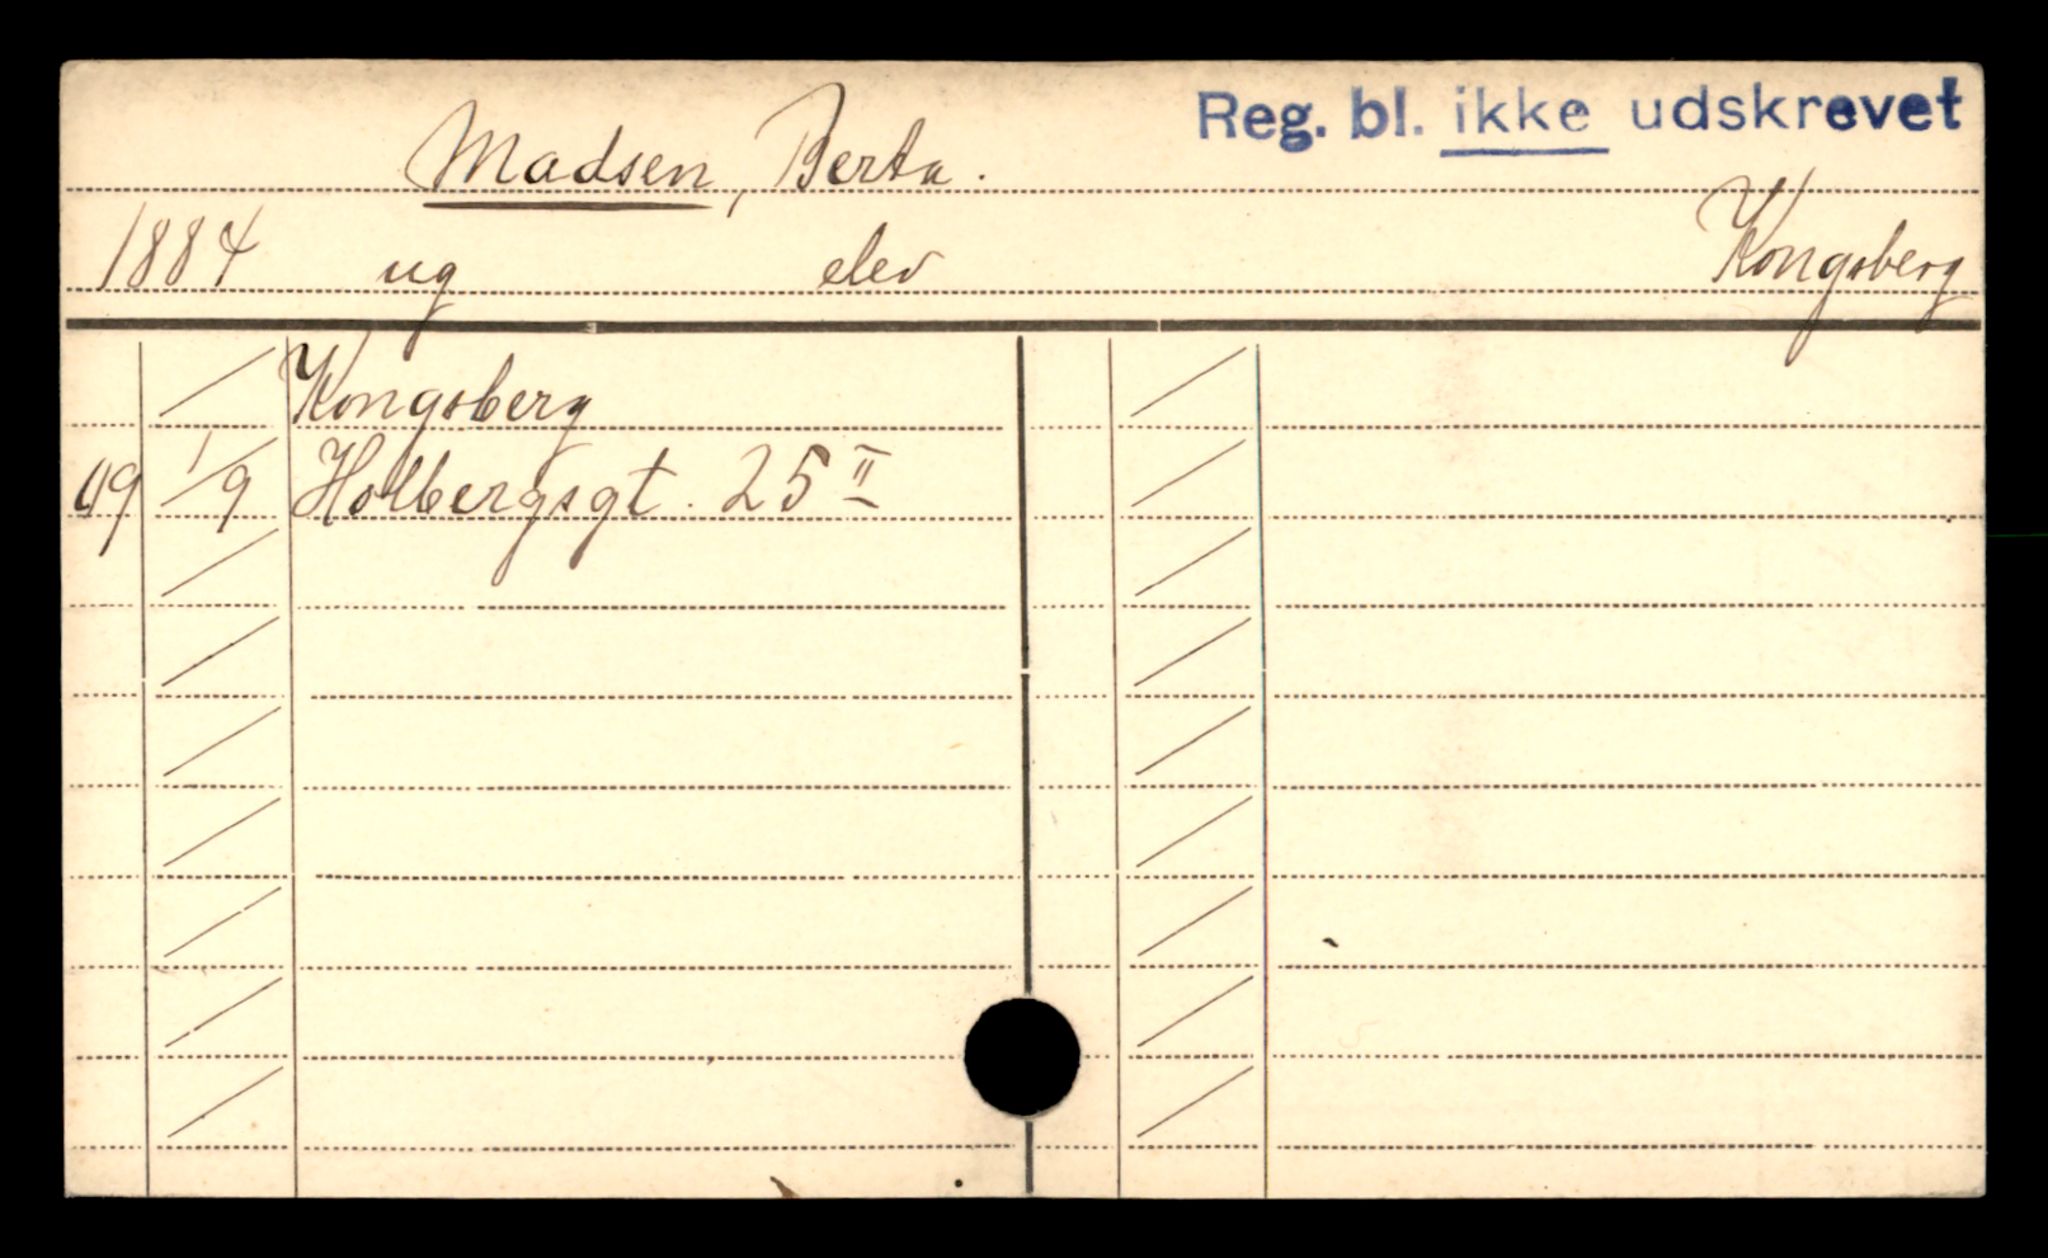 Reg. bl. ikke udskrevet
Madsen, Berta.
1884 ug elev Kongsberg
Kongsberg
09 1/9 Holbergsgt. 25 II